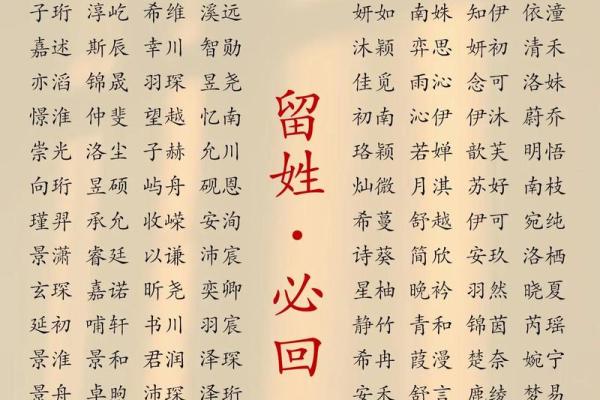 子珩 淳屹 希维 溪远
嘉述 斯辰 幸川 智勋
亦滔 锦晟 羽琛 昱尧
憬淮 仲斐 望越 忆南
崇光 洛尘 子赫 允川
向珩 昱硕 屿舟 砚恩
瑾羿 承允 收嵘 安洵
景潇 睿廷 以谦 沛宸
玄琛 嘉诺 昕尧 奕卿
延初 哺轩 书川 羽宸
景淮 景和 君润 泽琛
景舟 卓昫 沛琛 泽珩
留姓·必回
妍如 南姝 知伊 依潼
沐颖 弈思 妍初 清禾
佳觅 雨沁 念可 洛妹
初南 沁伊 伊沐 蔚乔
珞颖 若婵 歆芙 明悟
灿微 月淇 苏好 南枝
希蔓 舒越 伊可 宛纯
诗葵 简欣 安玖 洛栖
星柚 晚衿 羽然 晓夏
静竹 青和 锦茵 芮瑶
希冉 葭漫 楚奈 婉宁
安禾 舒言 鹿绫 梦易